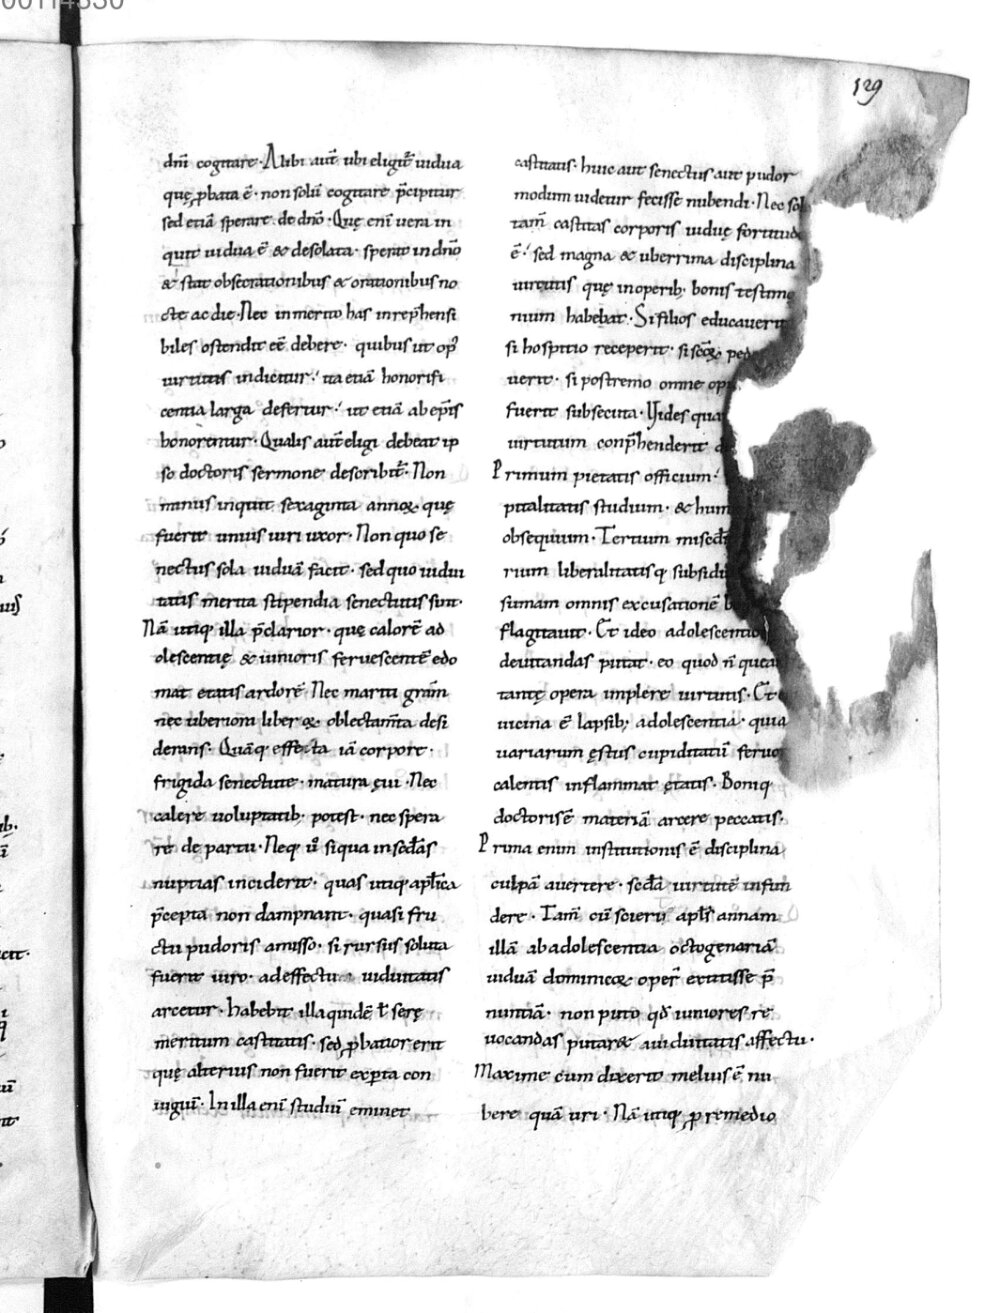 00114330
129
dnī cogitare · Alibi aut̄ ubi eligit̄ uidua
quę ꝓbata ē · non solū cogitare p̄cipitur
sed etiā sperare de dn̄o · Quę enī uera in
quit uidua ē & desolata · sperat in dn̄o
& stat obsecrationibus & orationibus no
cte ac die · Nec inmerito has inrep̄hensi
biles ostendit eē debere · quibus ut op̄
uirtutis indicitur · ita etiā honorifi
centia larga defertur · ut etiā ab ep̄is
honorentur · Qualis aut̄ eligi debeat ip
so doctoris sermone describit̄ · Non
minus inquit sexaginta annoꝝ · quę
fuerit unius uiri uxor · Non quo se
nectus sola uiduā facit · sed quo uidui
tatis merita stipendia senectutis sint ·
Nā utiq illa p̄clarior · quę calorē ad
olescentię & iunioris feruescentē edo
mat etatis ardorē · Nec mariti grām
nec uberiora liberoꝝ oblectam̄ta desi
derans · Quāq effecta iā corpore ·
frigida senectute · matura ęui · Nec
calere uoluptatib; potest · nec spera
re de partu · Neq u° si qua in sedās
nuptias inciderit · quas utiq apl̄ica
p̄cepta non dampnant · quasi fru
ctu pudoris amisso · si rursus soluta
fuerit uiro · ad effectū uiduitatis
arcetur · habebit illa quidē t̄ serę
meritum castitatis · sed ꝓbatior erit
quę alterius non fuerit exꝑta con
iugiū · In illa enī studiū eminet
castitatis · huic aut senectus aut pudor
modum uidetur fecisse nubendi · Nec sol
tam̄ castitas corporis uiduę fortitud
ē · sed magna & uberrima disciplina
uirtutis quę in operib; bonis testimo
nium habebat · Si filios educauerit
si hospitio receperit · si scōꝝ ped
uerit · si postremo omne op
fuerit subsecuta · Vides qua
uirtutum conp̄henderit
Primum pietatis officium ·
pitalitatis studium · & hum
obsequium · Tertium misedi
rium liberalitatisq subsidi
sumam omnis excusationē
flagitauit · Et ideo adolescentio
deuitandas putat · eo quod n̄ quea
tantę opera implere uirtutis · Et
uicina ē lapsib; adolescentia · quia
uariarum ęstus cupiditatū feruo
calentis inflammat ętatis · Boniq
doctoris ē materiā arcere peccatis ·
Prima enim institutionis ē disciplina
culpā auertere · sedā uirtutē infun
dere · Tam̄ cū scierit apl̄s annam
illā ab adolescentia octogenariā
uiduā dominicoꝝ oper̄ extitisse p̄
nuntiā · non puto qd̄ iuniores re
uocandas putar& a uiduitatis affectu ·
Maxime cum dixerit melius ē nu
bere quā uri · Nā utiq ꝓ remedio